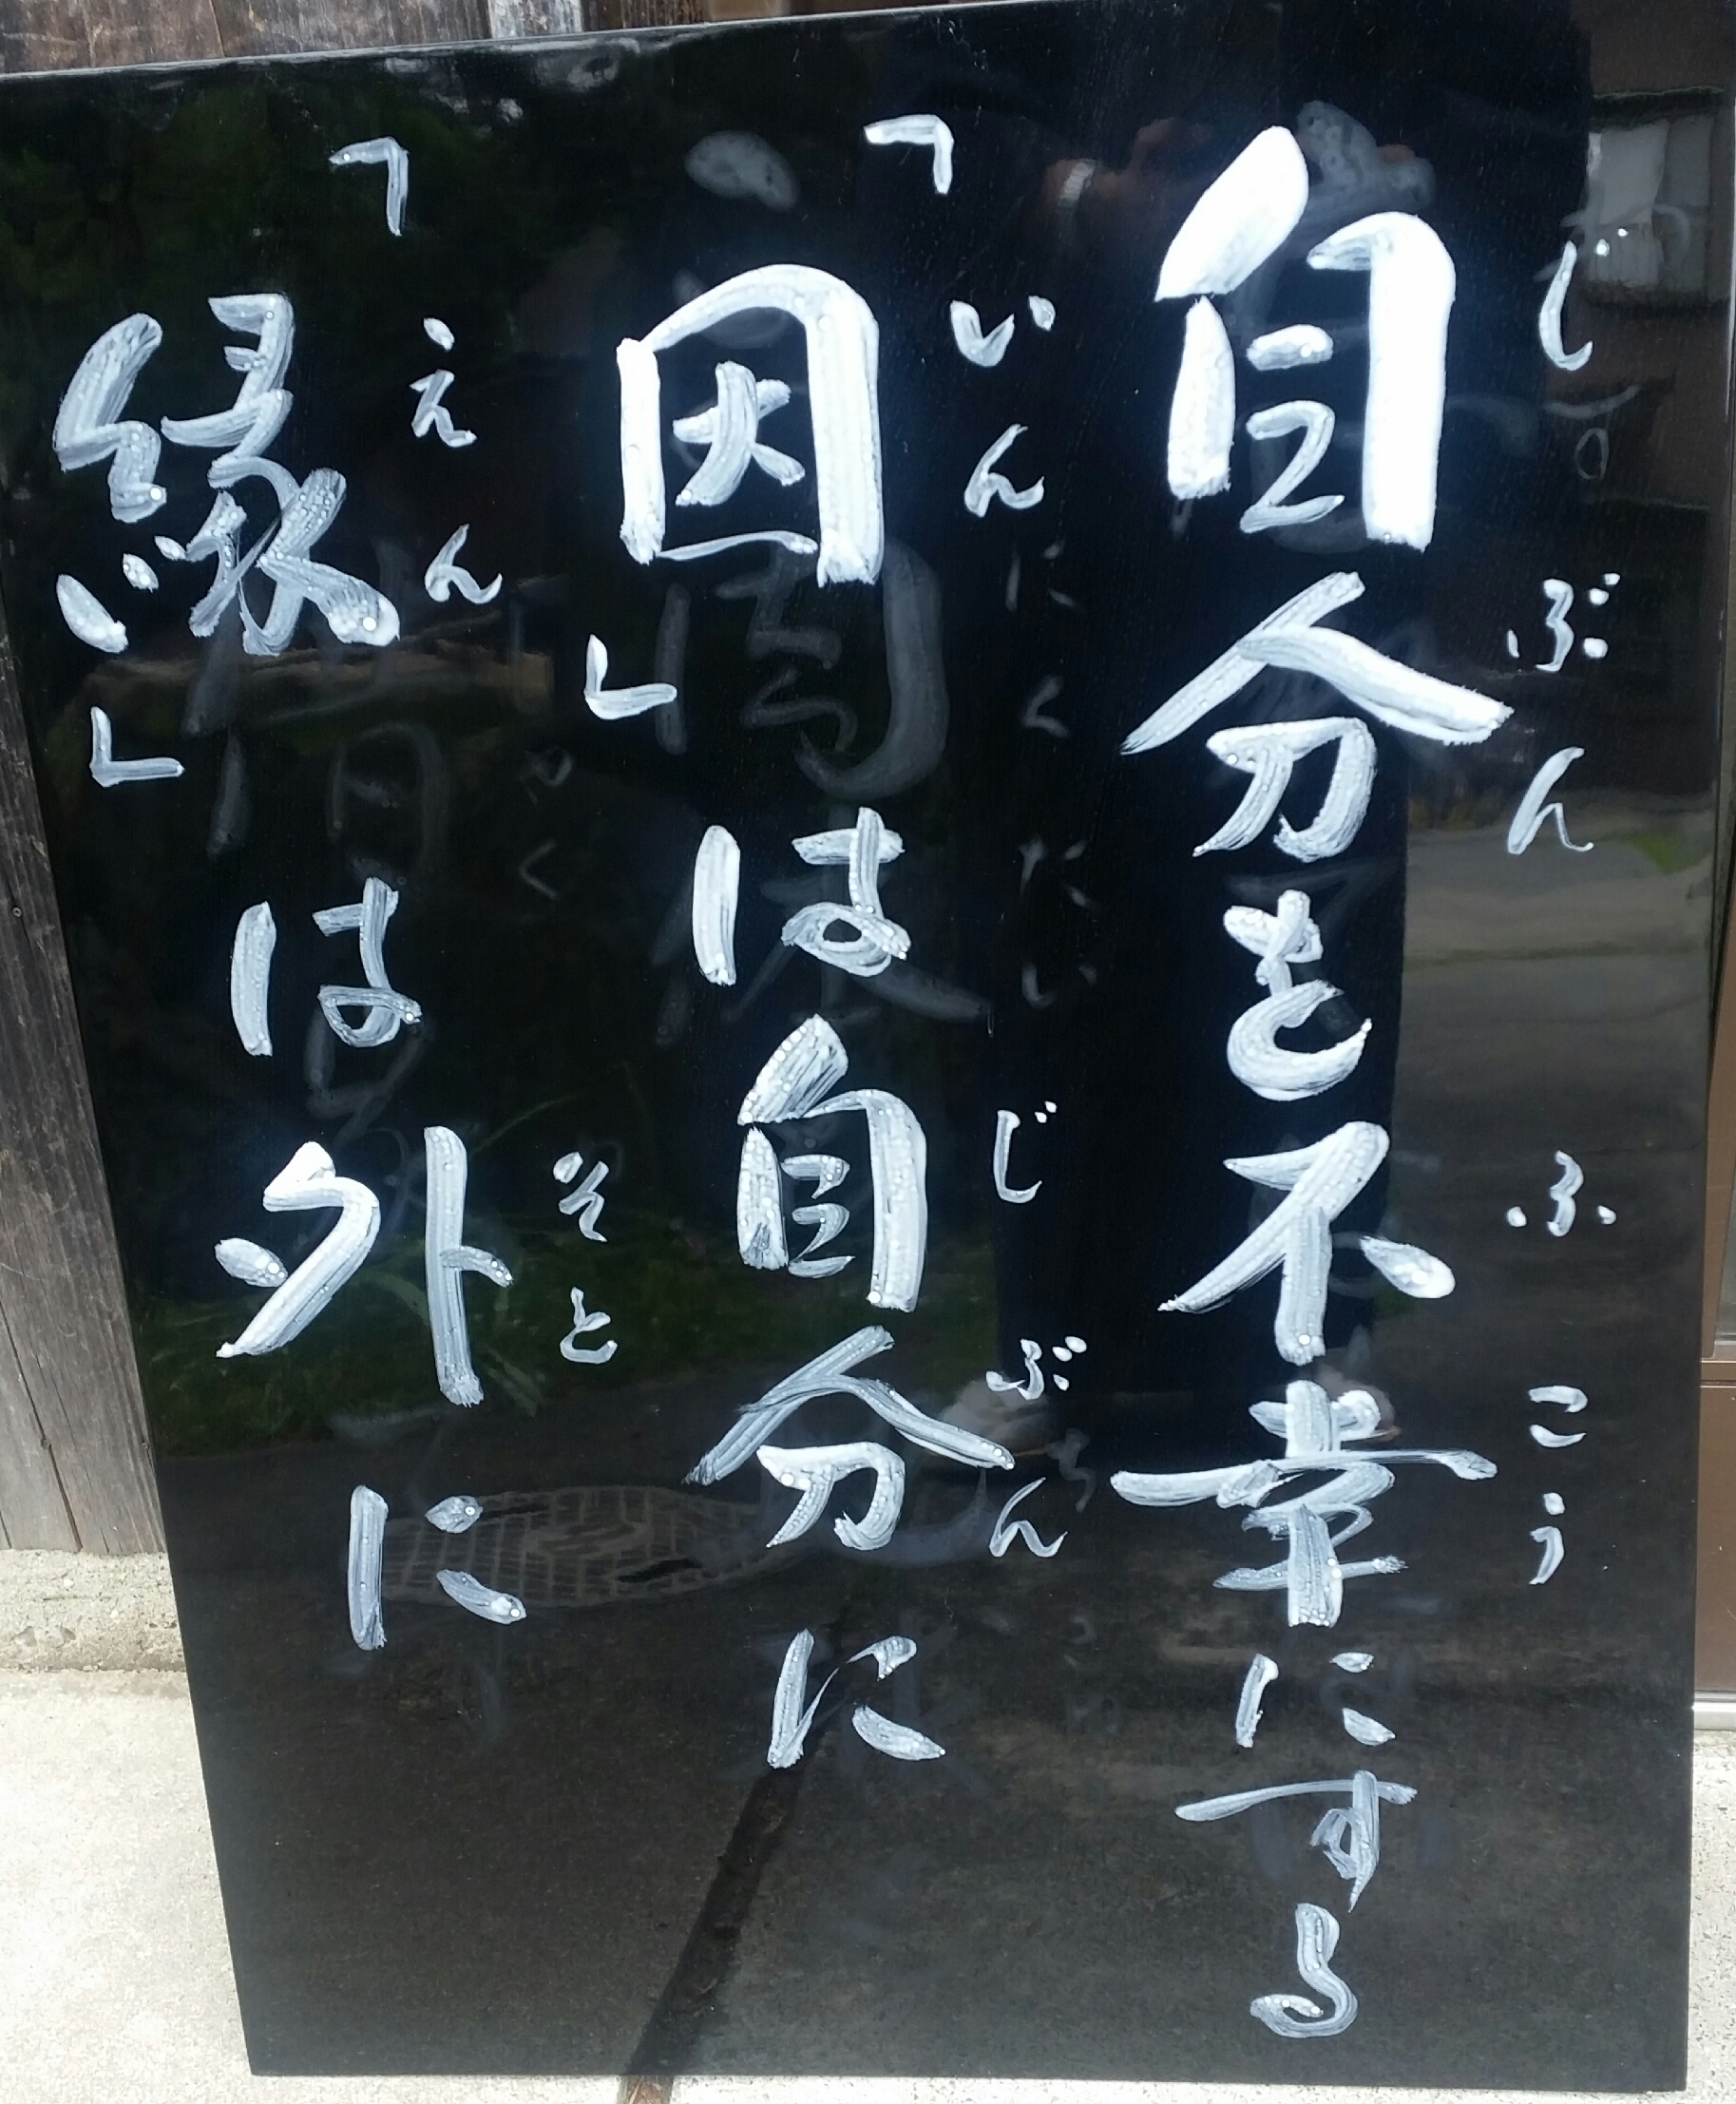 自分を不幸にする
じぶん ふこう
「因」は自分に
いん じぶん
「縁」は外に
えん そと